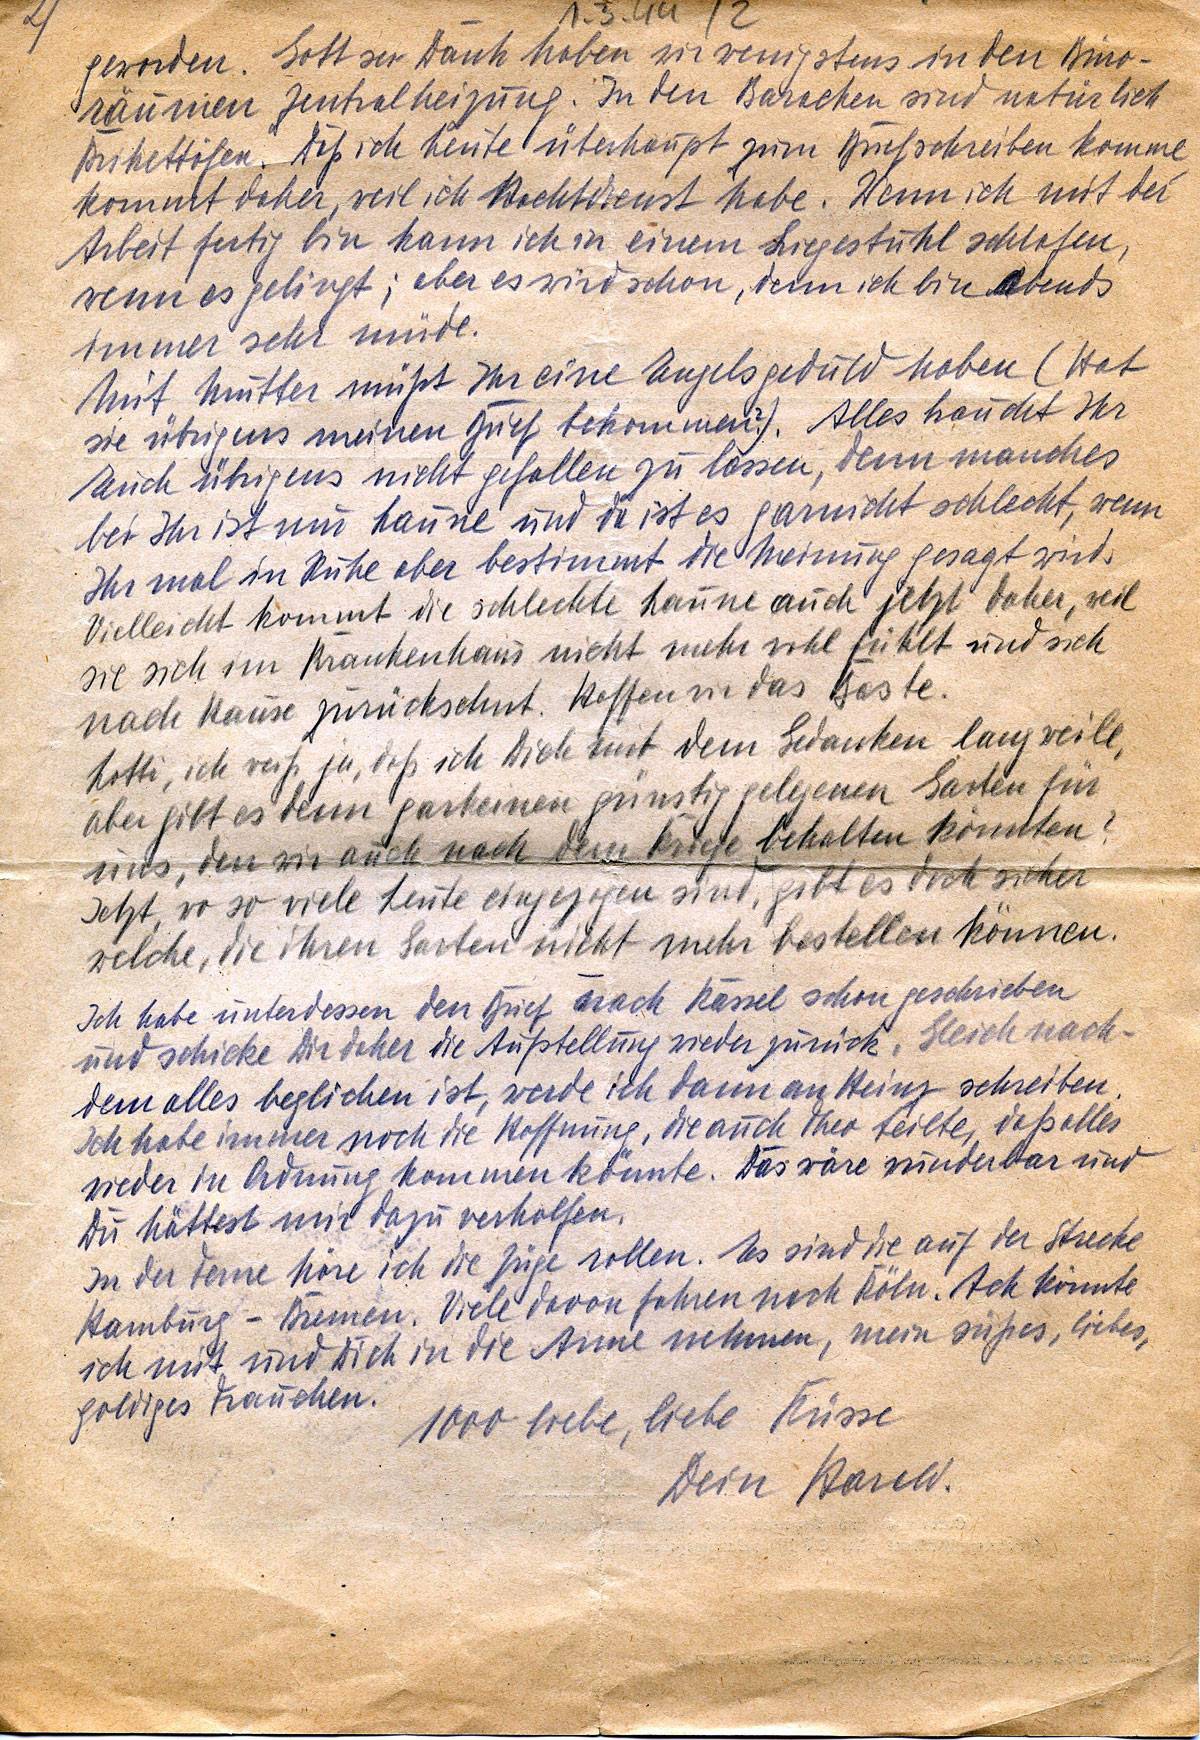 2/ 1.3.44 /2
geworden. Gott sei Dank haben wir wenigstens in den Büro-
räumen Zentralheizung. In den Baracken sind natürlich
Brikettöfen. Daß ich heute überhaupt zum Briefschreiben komme
kommt daher, weil ich Nachtdienst habe. Wenn ich mit der
Arbeit fertig bin kann ich in einem Liegestuhl schlafen,
wenn es gelingt; aber es wird schon, denn ich bin abends
immer sehr müde.
Mit Mutter müßt Ihr eine Engelsgeduld haben (Hat
sie übrigens meinen Brief bekommen?). Alles braucht Ihr
Euch übrigens nicht gefallen zu lassen, denn manches
bei Ihr ist nur Laune und da ist es garnicht schlecht, wenn
Ihr mal in Ruhe aber bestimmt die Meinung gesagt wird.
Vielleicht kommt die schlechte Laune auch jetzt daher, weil
sie sich im Krankenhaus nicht mehr wohl fühlt und sich
nach Hause zurücksehnt. Hoffen wir das Beste.
Lotti, ich weiß ja, daß ich Dich mit dem Gedanken langweile,
aber gibt es denn garkeinen günstig gelegenen Garten für
uns, den wir auch nach dem Kriege behalten könnten?
Jetzt, wo so viele Leute eingezogen sind, gibt es doch sicher
welche, die ihren Garten nicht mehr bestellen können.
Ich habe unterdessen den Brief nach Kassel schon geschrieben
und schicke Dir daher die Aufstellung wieder zurück. Gleich nach-
dem alles beglichen ist, werde ich dann an Heinz schreiben.
Ich habe immer noch die Hoffnung, die auch Theo teilte, daß alles
wieder in Ordnung kommen könnte. Das wäre wunderbar und
Du hättest mir dazu verholfen.
In der Ferne höre ich die Züge rollen. Es sind die auf der Strecke
Hamburg - Bremen. Viele davon fahren nach Köln. Ach könnte
ich mit und Dich in die Arme nehmen, mein süßes, liebes,
goldiges Frauchen.
1000 liebe, liebe Küsse
Dein